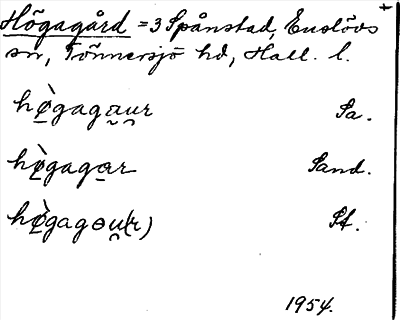 Högagård = 3 Spånstad, Enslövs
sn, Tönnersjö hd, Hall. l.
hø̀gagau̯r Sa.
hø̀gagar Sand.
hø̀gagɵu̯(r) St.
1954.